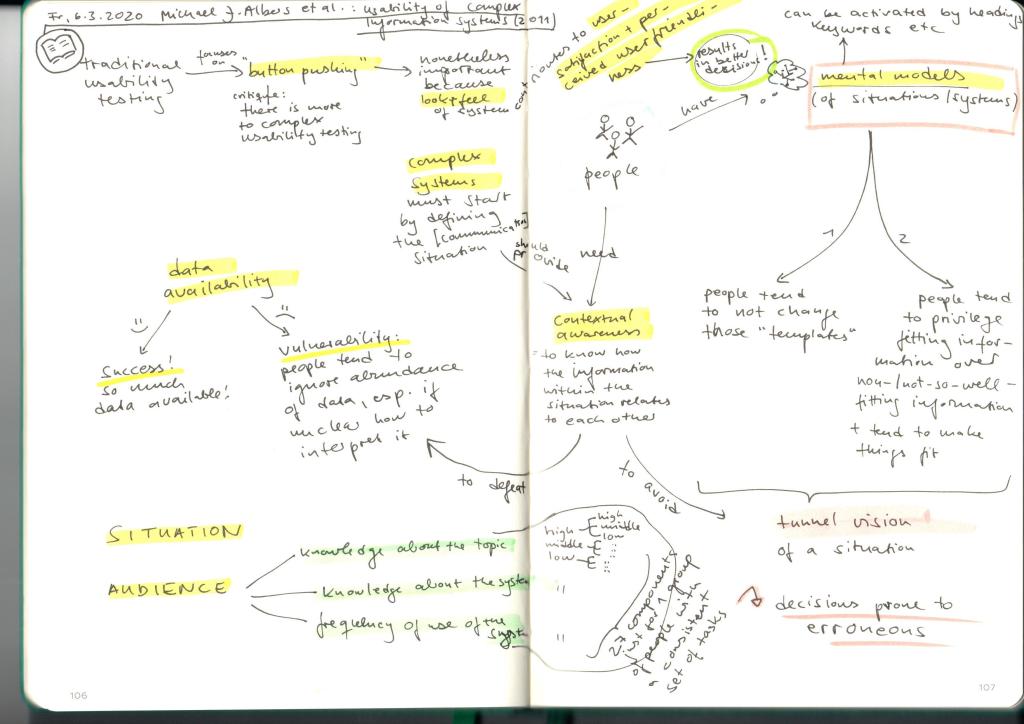 Fr, 6.3.2020 Michael J. Albers et al.: Usability of Complex
Information Systems (2011)
traditional
usability
testing
focuses
on
"button pushing"
critique:
there is more
to complex
usability testing
nonetheless
important
because
look&feel
of system
contributes to user-
satisfaction + per-
ceived userfriendli-
ness
results
in better
decisions!
can be activated by headings
keywords etc
mental models
(of situations/systems)
have
people
need
complex
systems
must start
by defining
the [communication]
situation
should
provide
data
availability
Success!
so much
data available!
vulnerability:
people tend to
ignore abundance
of data, esp. if
unclear how to
interpret it
contextual
awareness
= to know how
the information
within the
situation relates
to each other
to defeat
to avoid
1
people tend
to not change
those "templates"
2
people tend
to privilege
fitting infor-
mation over
non-/not-so-well-
fitting information
+ tend to make
things fit
tunnel vision
of a situation
decisions prone to
erroneous
SITUATION
AUDIENCE
knowledge about the topic
knowledge about the system
frequency of use of the
system
high
high
middle
low
middle
low
"
"
27 components
just for 1 group
of people with
a consistent
set of tasks
106
107